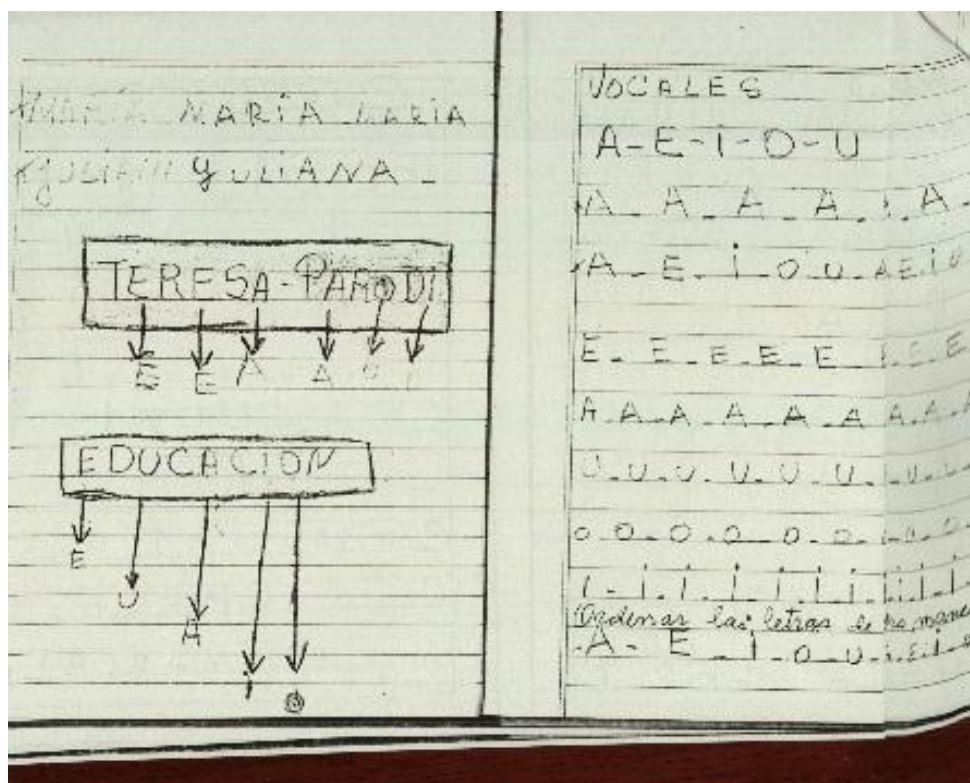 MARIA MARIA MARIA
YULIANA YULIANA -
TERESA - PARODI
E E A A O I
EDUCACION
E
U
A
i
O
VOCALES
A-E-i-O-U
A - A - A - A - A -
A - E - i - O U - AEiO
E - E - E - E - E E - E
A - A - A - A - A - A A - A - A
U - U - U - U - U - U - U - U
O - O - O - O - O - O - O
i - i - i - i - i - i - i - i
Ordenar las letras de
A - E - i - O - U - E i